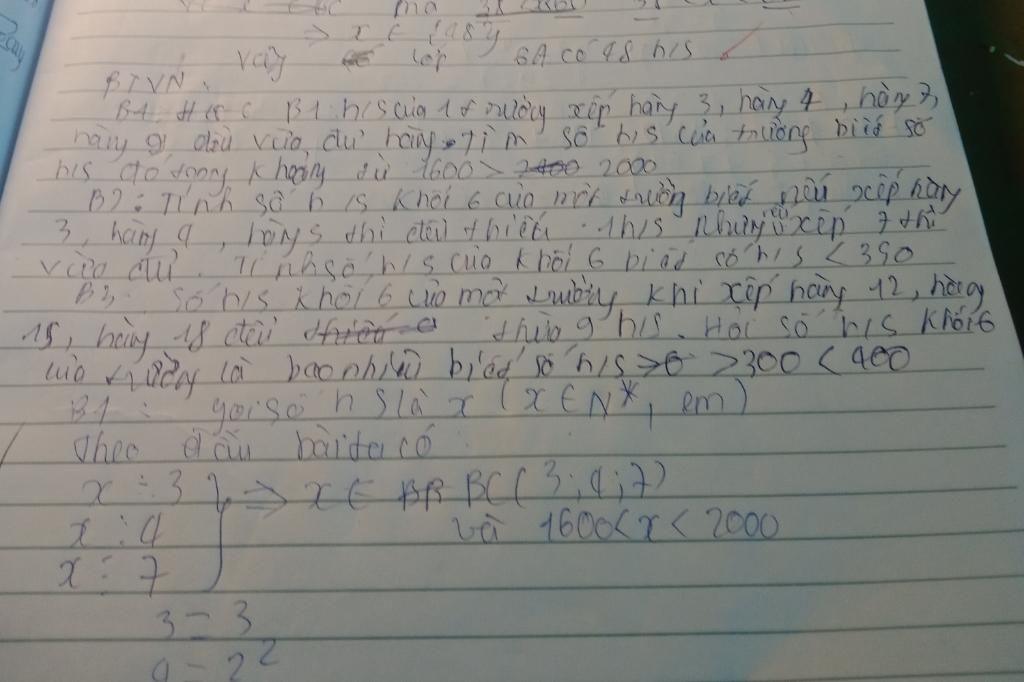 ⇒ x ∈ {48}
Vậy lớp 6A có 48 h/s
BTVN:
B1: H/S B1 h/s của 1 trường xếp hàng 3, hàng 4, hàng 7,
hàng 9 đều vừa đủ hàng. Tìm số h/s của trường biết số
h/s đó trong khoảng từ 1600 > 2000
B2: Tính số h/s khối 6 của một trường biết nếu xếp hàng
3, hàng 4, hàng 5 thì đều thiếu 1h/s nhưng xếp 7 thì
vừa đủ. Tính số h/s của khối 6 biết số h/s < 390
B3: Số h/s khối 6 của một trường khi xếp hàng 12, hàng
15, hàng 18 đều thừa 9 h/s. Hỏi số h/s khối 6
của trường là bao nhiêu biết số h/s > 300 < 400
B1: gọi số h s là x (x ∈ N*, em)
theo đầu bài ta có
x ⋮ 3 } ⇒ x ∈ BC(3;4;7)
x ⋮ 4 và 1600 < x < 2000
x ⋮ 7
3 = 3
4 = 2²